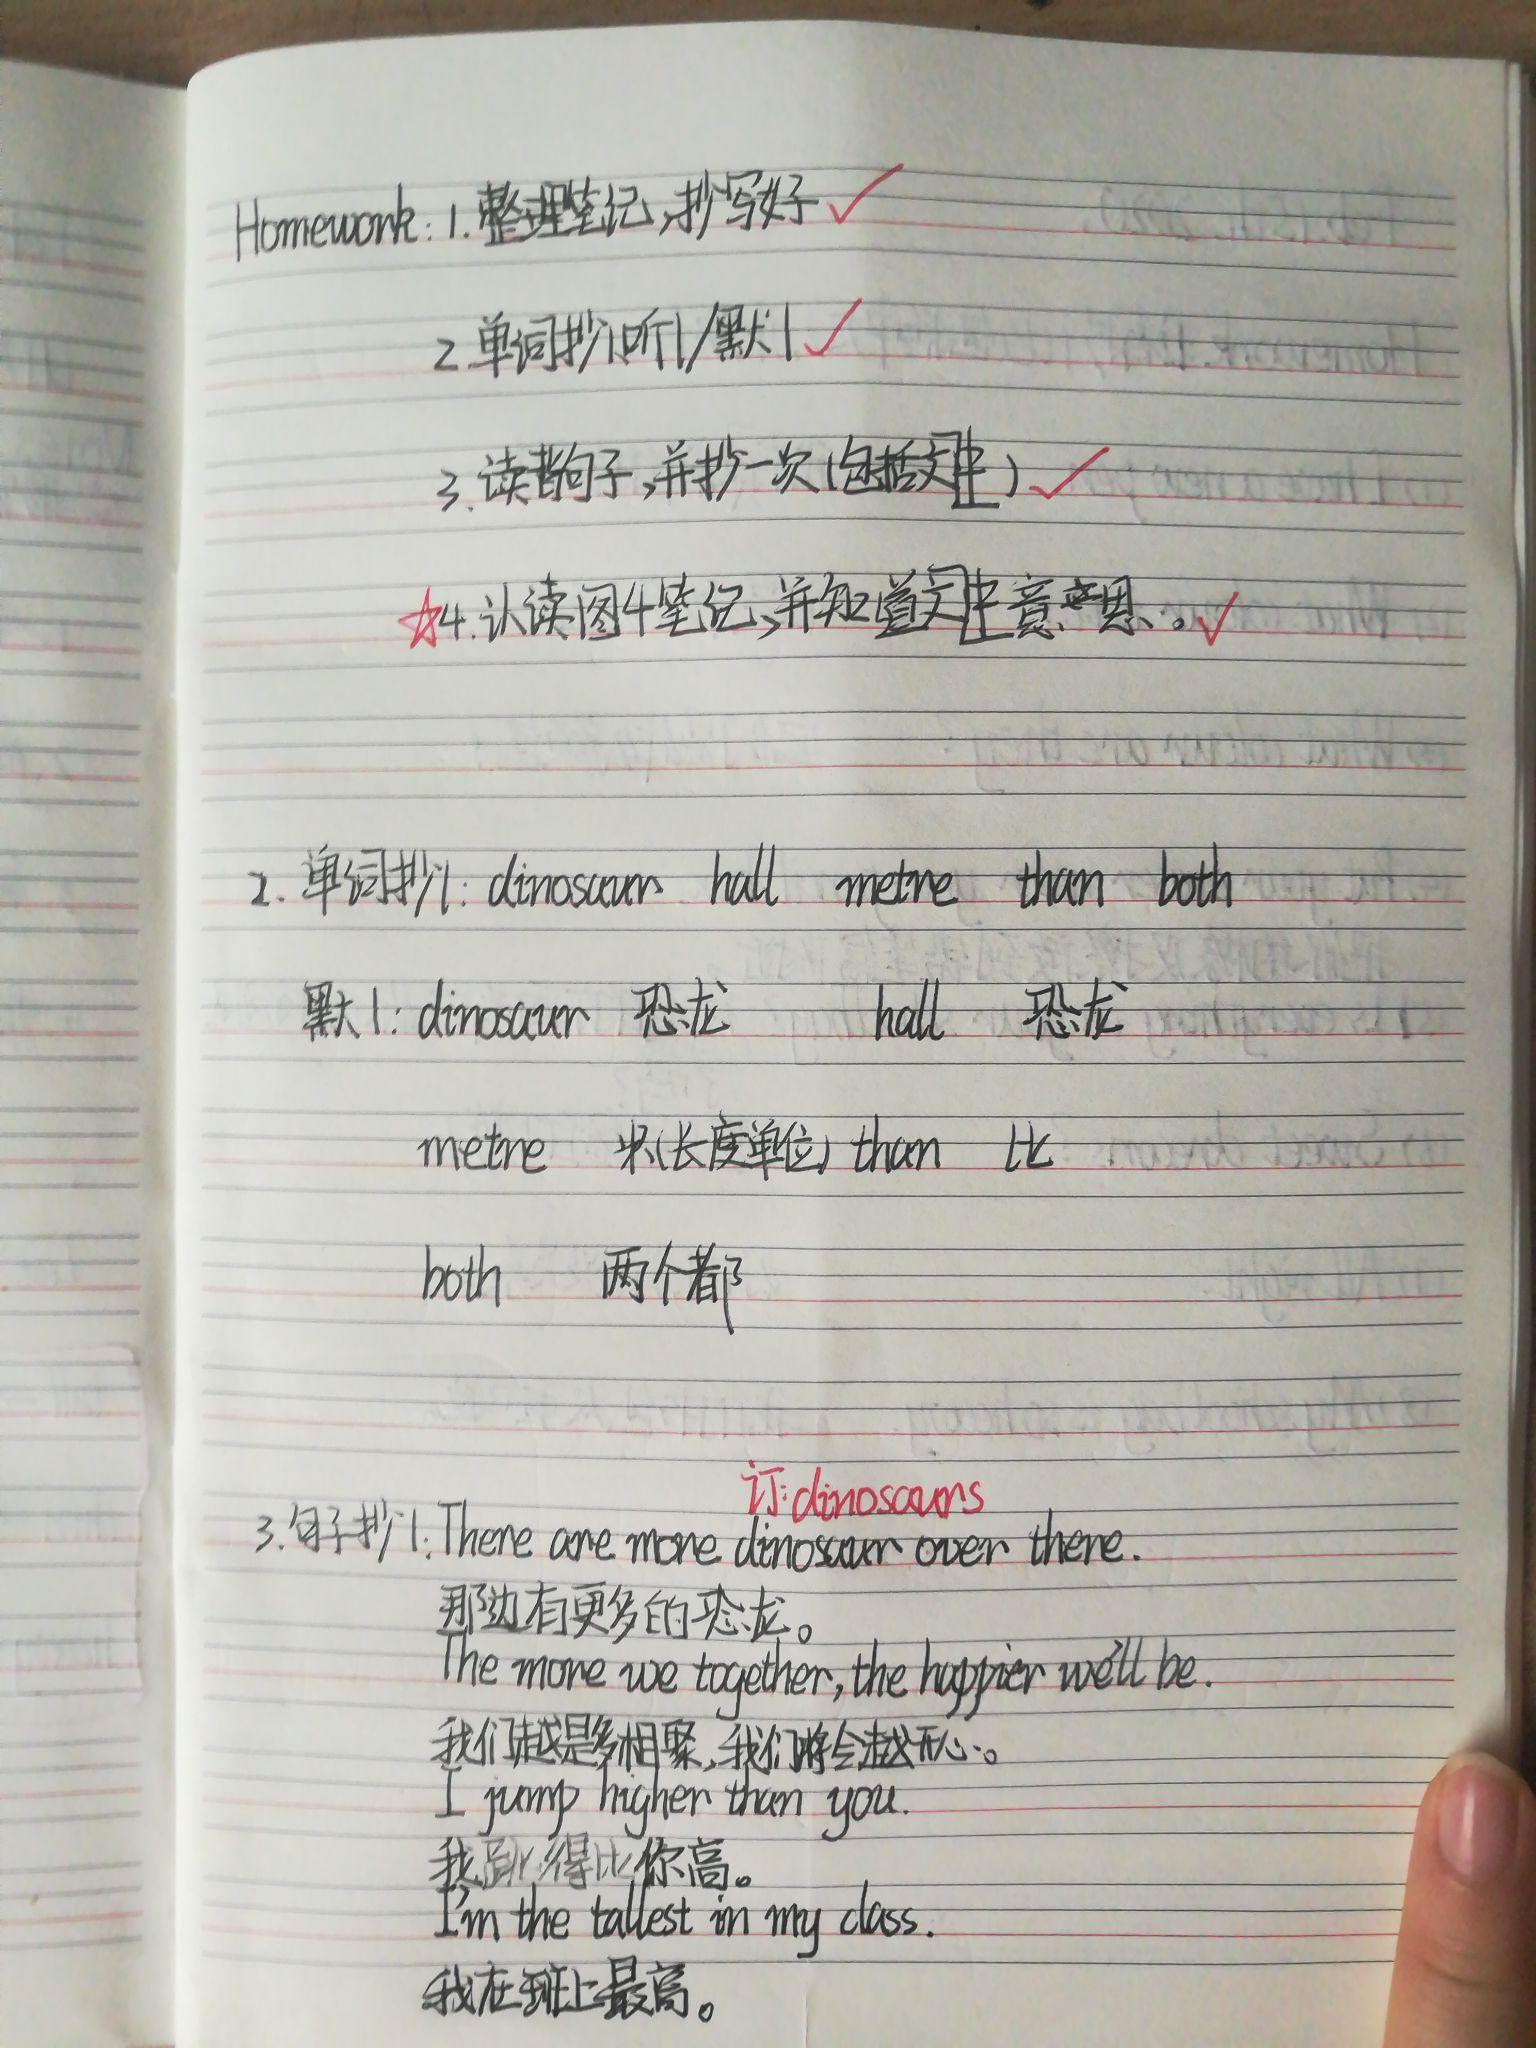 Homework: 1. 整理笔记,抄写好
2. 单词抄1听1/默1
3. 读背句子,并抄一次(包括文中)
☆4. 认读图4笔记,并知道文中意思。
2. 单词抄1: dinosaur hall metre than both
默1: dinosaur 恐龙 hall 恐龙
metre 米(长度单位) than 比
both 两个都
订: dinosaurs
3. 句子抄1: There are more dinosaur over there.
那边有更多的恐龙。
The more we together, the happier we'll be.
我们越是多相聚,我们将会越开心。
I jump higher than you.
我跳得比你高。
I'm the tallest in my class.
我在班上最高。